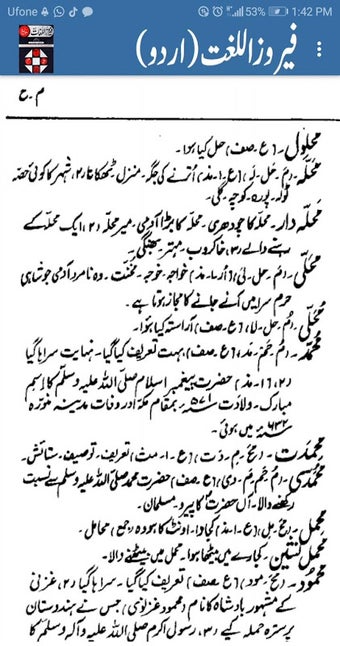 Ufone 53% 1:42 PM
فیروز اللغت (اردو)
م۔ح
محلول۔ (ع۔صف) حل کیا ہوا۔
محلّہ۔ (مَ۔حَل۔لَہ) (ع۔ا۔مذ) اُترنے کی جگہ۔ منزل ٹھکانا (۲) شہر کا کوئی حصّہ
ٹولہ۔ پورہ۔ کوچہ۔ گلی۔
محلّہ دار۔ محلّہ کا چودھری۔ محلّہ کا بڑا آدمی۔ میر محلّہ (۲) ایک محلّہ کے
بسنے والے (۳) خاکروب۔ مہتر۔ بھنگی۔
محلّی۔ (مَ۔حل۔لی) (اُر۔ا۔مذ) خواجہ۔ خوجہ۔ مخنّث۔ وہ نامرد آدمی جو شاہی
حرم سرا میں آنے جانے کا مجاز ہوتا ہے۔
محلّٰی۔ (مُ۔حل۔لا) (ع۔صف) آراستہ کیا ہوا۔
محمّد۔ (مُ۔حَم۔مَد) (ع۔صف) بہت تعریف کیا گیا۔ نہایت سراہا گیا
(۲) (ا۔مذ) حضرت پیغمبر اسلام صلّی اللہ علیہ وسلّم کا اِسم
مبارک۔ ولادت ۵۷۱ء بمقام مکّہ اور وفات مدینہ منوّرہ
۶۳۲ء میں ہوئی۔
محمدت۔ (مَح۔مِ۔دَت) (ع۔ا۔مث) تعریف۔ توصیف۔ ستائش۔
محمّدی۔ (مُ۔حَم۔مَ۔دی) (ع۔صف) حضرت محمد صلّی اللہ علیہ وسلم سے نسبت
رکھنے والا۔ آں حضرت کا پیرو۔ مسلمان۔
محمل۔ (مَح۔مِل) (ع۔ا۔مذ) کجاوا۔ اونٹ کا ہودہ (جمع) محامل۔
محمل نشین۔ کجاوے میں بیٹھا ہوا۔ محمل میں بیٹھنے والا۔
محمود۔ (مَح۔مود) (ع۔صف) تعریف کیا گیا۔ سراہا گیا (۲) غزنی
کے مشہور بادشاہ کا نام (محمود غزنوی) جس نے ہندوستان
پر سترہ حملہ کیے (۳) رسول اکرم صلی اللہ علیہ وآلہ وسلم کا